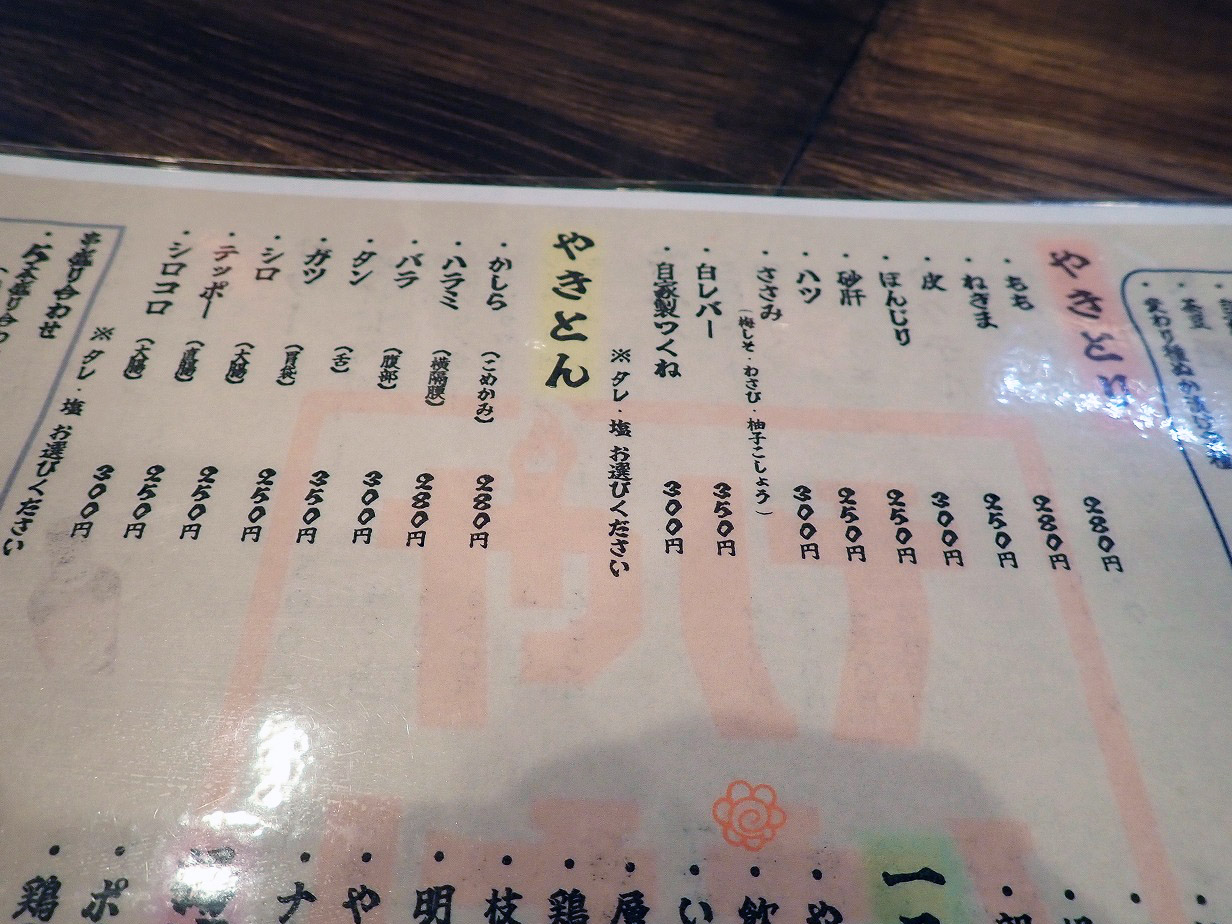 ・茶豆
やきとり
・もも 280円
・ねぎま 280円
・皮 250円
・ぼんじり 300円
・砂肝 250円
・ハツ 250円
・ささみ (梅しそ・わさび・柚子こしょう) 300円
・白レバー 350円
・自家製つくね 300円
※タレ・塩 お選びください
やきとん
・かしら (こめかみ) 280円
・ハラミ (横隔膜) 280円
・バラ (腹部) 300円
・タン (舌) 350円
・ガツ (胃袋) 250円
・シロ (大腸) 250円
・テッポー (直腸) 250円
・シロコロ (大腸) 300円
※タレ・塩 お選びください
串盛り合わせ
・5本盛り合わ
一
・や
・飲
・い
・鶏
・枝
・明
・や
・ナ
・ポ
・鶏